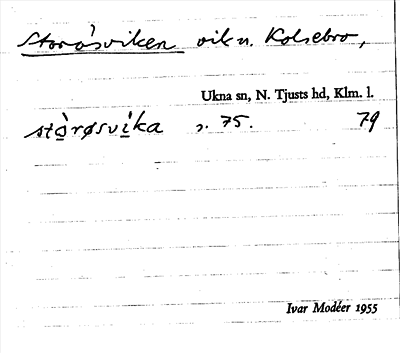 Storåsviken vik n. Kolsebro,
Ukna sn, N. Tjusts hd, Klm. l.
stòrøsvi̱ka s. 75. 79
Ivar Modéer 1955